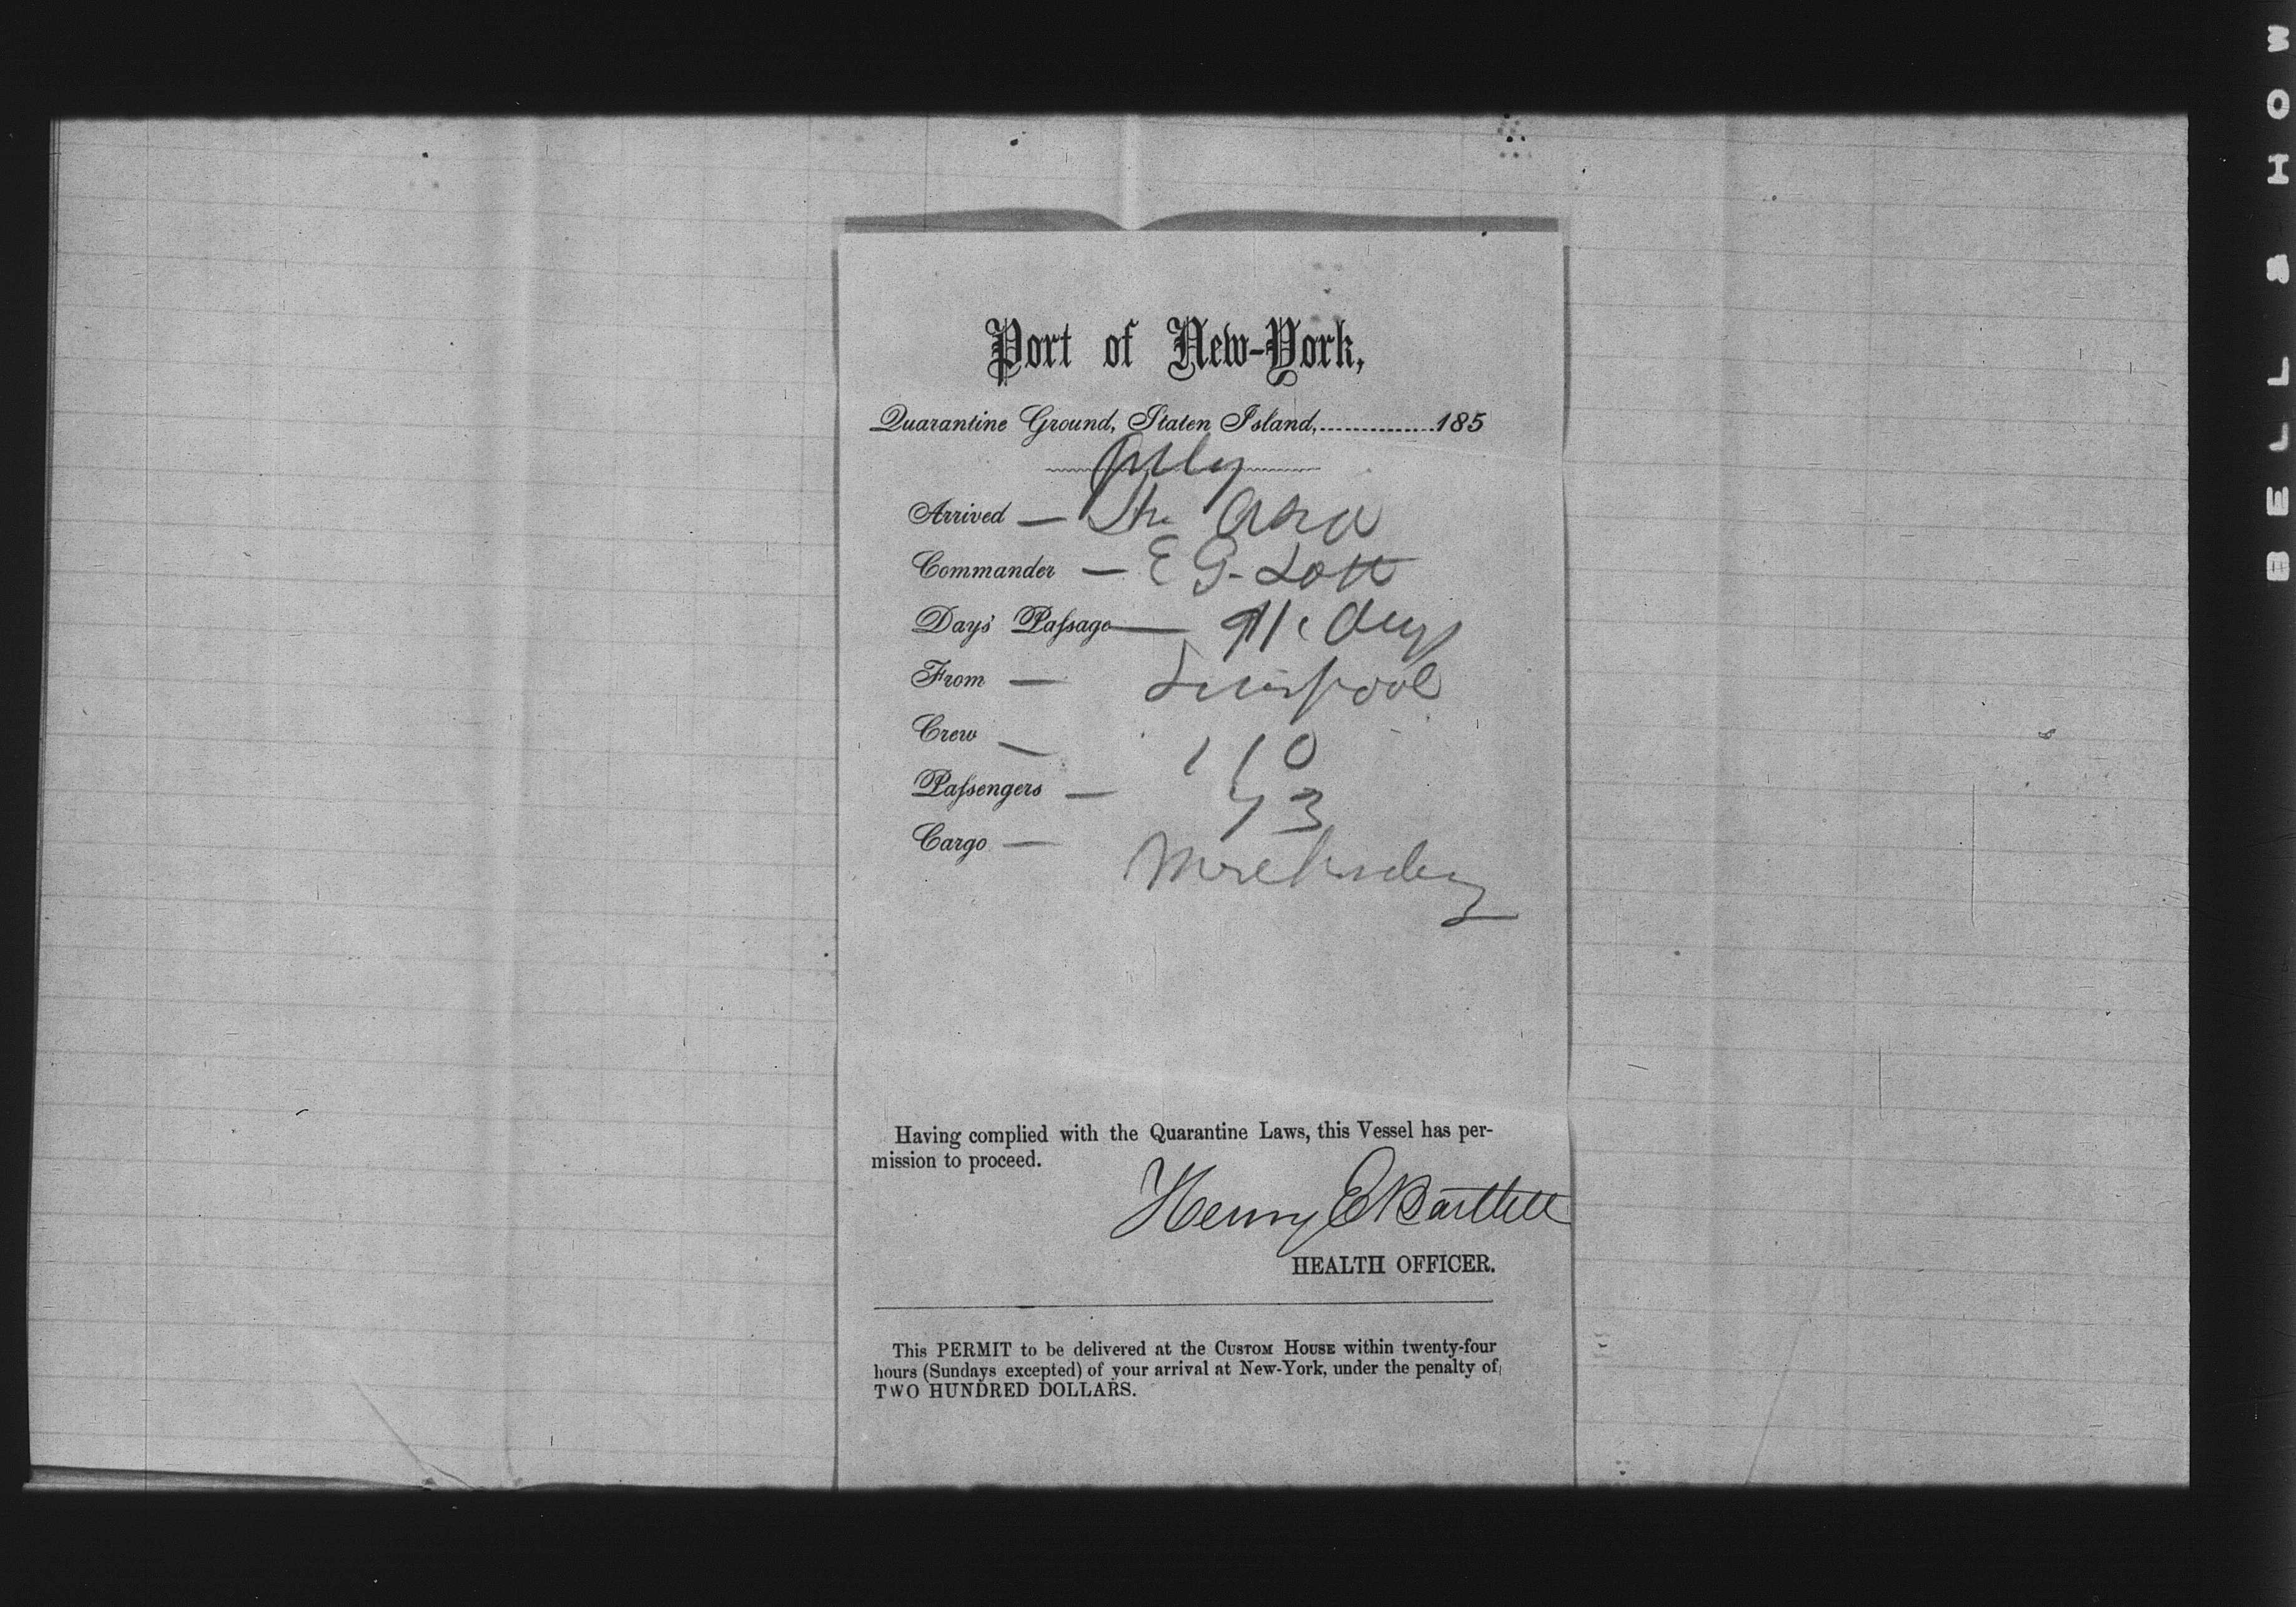 Port of New-York,
Quarantine Ground, Staten Island, 185
July
Arrived — Str Asia
Commander — E G. Lott
Days' Passage — 11 Days
From — Liverpool
Crew — 110
Passengers — 73
Cargo — Merchandize
Having complied with the Quarantine Laws, this Vessel has per-
mission to proceed.
Henry E Bartlett
HEALTH OFFICER.
This PERMIT to be delivered at the CUSTOM HOUSE within twenty-four
hours (Sundays excepted) of your arrival at New-York, under the penalty of
TWO HUNDRED DOLLARS.
BELL & HOW